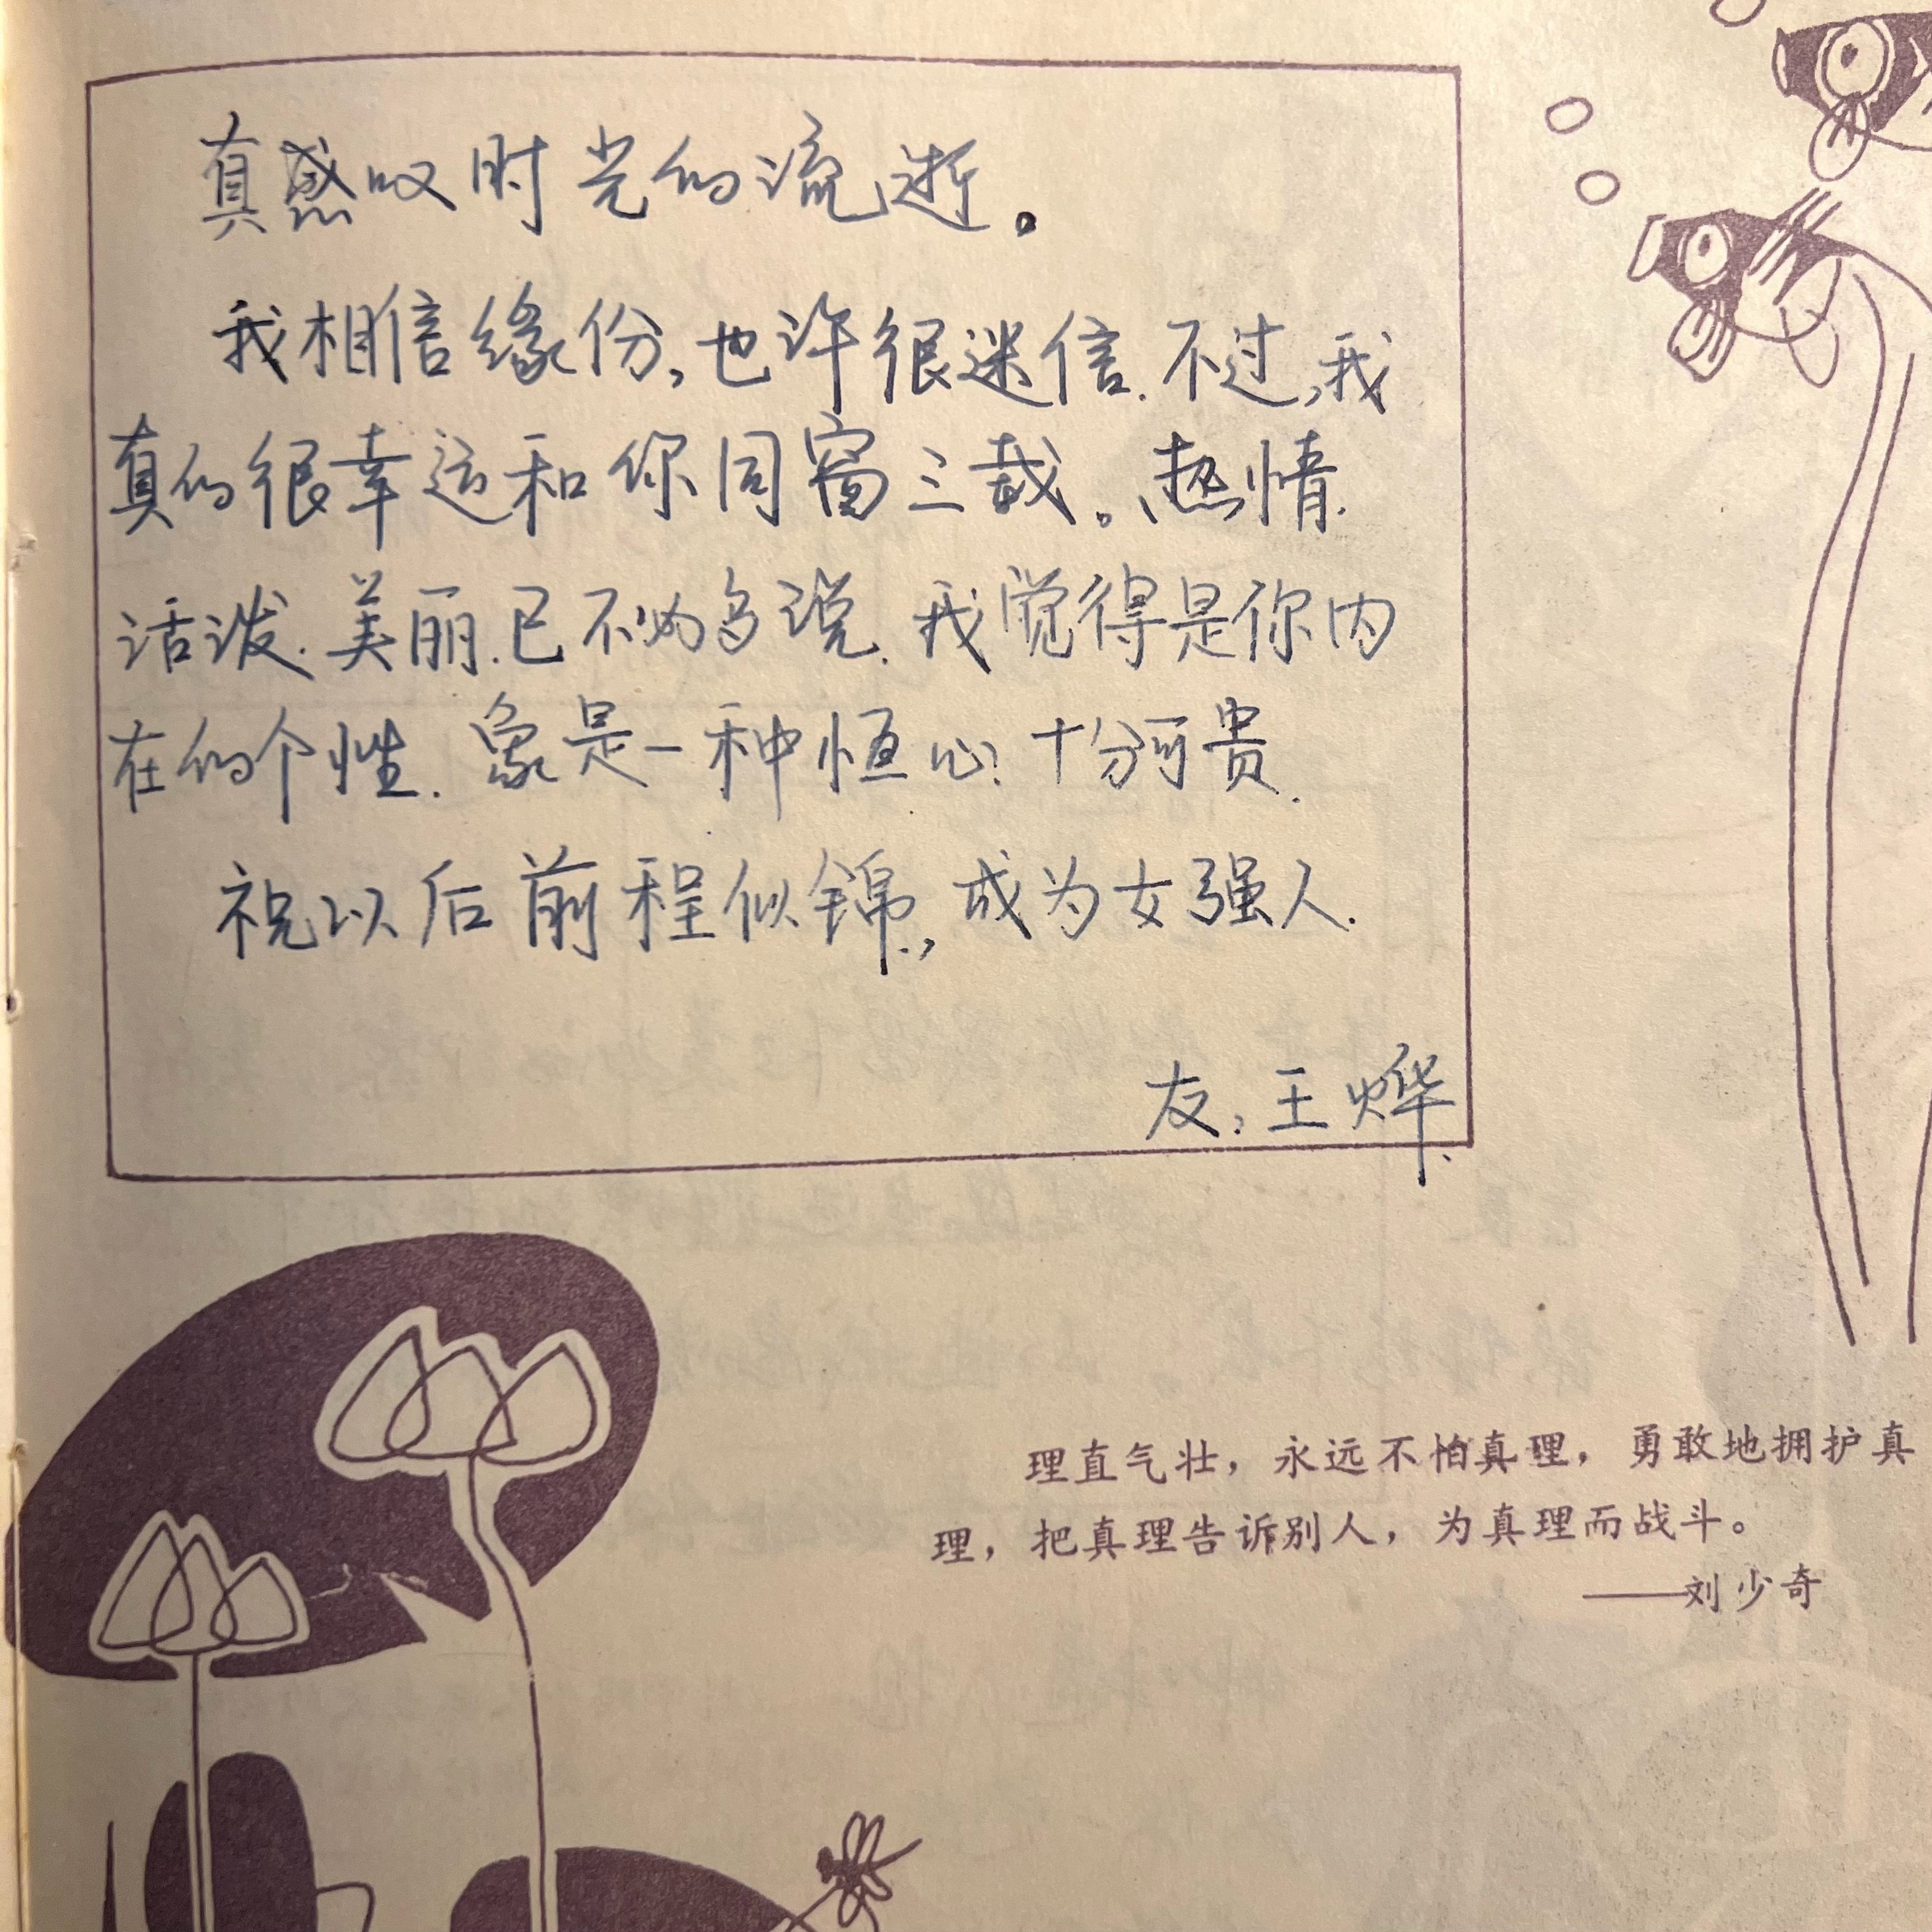 真感叹时光的流逝。
我相信缘份,也许很迷信.不过,我
真的很幸运和你同窗三载。热情.
活泼.美丽.已不必多说.我觉得是你内
在的个性.象是一种恒心.十分可贵.
祝以后前程似锦,成为女强人.
友:王烨.
理直气壮，永远不怕真理，勇敢地拥护真
理，把真理告诉别人，为真理而战斗。
——刘少奇